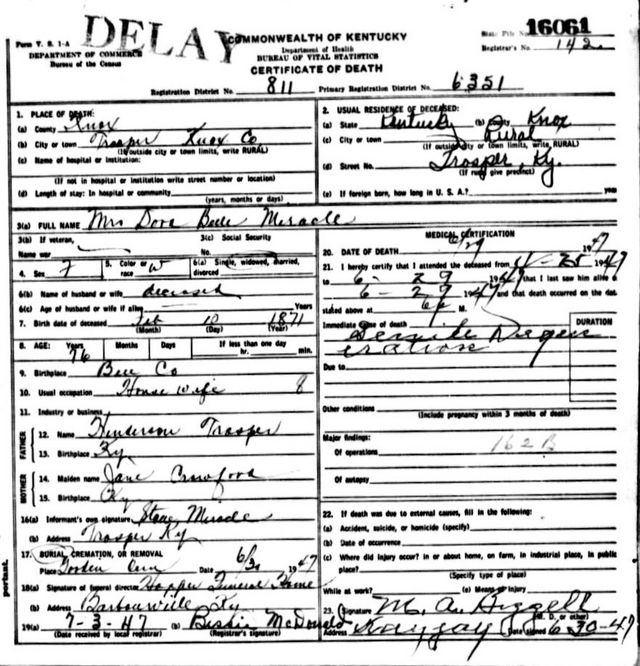 DELAY
16061
State File No.
Form V. S. 1-A
COMMONWEALTH OF KENTUCKY
DEPARTMENT OF COMMERCE
Bureau of the Census
Department of Health
BUREAU OF VITAL STATISTICS
CERTIFICATE OF DEATH
Registrar's No. 142
Registration District No. 811 Primary Registration District No. 6351
1. PLACE OF DEATH:
(a) County Knox
(b) City or town Trosper Knox Co
(If outside city or town limits, write RURAL)
(c) Name of hospital or institution:
(If not in hospital or institution write street number or location)
(d) Length of stay: In hospital or community
(years, months or days)
2. USUAL RESIDENCE OF DECEASED:
(a) State Kentucky (b) County Knox
(c) City or town Rural
(If outside city or town limits, write RURAL)
(d) Street No. Trosper, Ky.
(If rural give precinct)
(e) If foreign born, how long in U. S. A.? years
3(a) FULL NAME Mrs Dora Bell Miracle
3(b) If veteran,
Name war
3(c) Social Security
No.
4. Sex F
5. Color or race W
6(a) Single, widowed, married, divorced
6(b) Name of husband or wife deceased
6(c) Age of husband or wife if alive Years
7. Birth date of deceased Feb 10 1871
(Month) (Day) (Year)
8. AGE: Years 76 Months Days If less than one day
hr. min.
9. Birthplace Bell Co
10. Usual occupation House wife 8
11. Industry or business
FATHER
12. Name Henderson Trosper
13. Birthplace Ky
MOTHER
14. Maiden name Jane Crawford
15. Birthplace Ky
16(a) Informant's own signature Miracle
(b) Address Trosper Ky
17. BURIAL, CREMATION, OR REMOVAL
Place Date 6/30 1947
18(a) Signature of funeral director Hopper Funeral Home
(b) Address Barbourville Ky
19(a) 7-3-47 (b) Bessie McDonald
(Date received by local registrar) (Registrar's signature)
MEDICAL CERTIFICATION
20. DATE OF DEATH 6/29 1947
21. I hereby certify that I attended the deceased from 1947
to 6-29 1947 that I last saw him alive
6-29 1947 and that death occurred on the date
stated above at M.
Immediate cause of death
Senile Degen
eration
DURATION
Due to
Other conditions
(Include pregnancy within 3 months of death)
Major findings:
Of operations 162B
Of autopsy
22. If death was due to external causes, fill in the following:
(a) Accident, suicide, or homicide (specify)
(b) Date of occurrence
(c) Where did injury occur? in or about home, on farm, in industrial place, in public
place?
(Specify type of place)
While at work? (e) Means of injury
23. Signature M. A.
(M. D. or other)
Address Kayjay Date signed 6-30-47
portant.